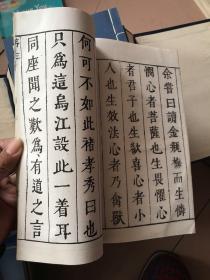 余嘗曰讀金瓶梅而生憐
憫心者菩薩也生畏懼心
者君子也生歡喜心者小
人也生效法心者乃禽獸
何可不如此褚孝秀曰也
只爲這烏江設此一着耳
同座聞之歎爲有道之言